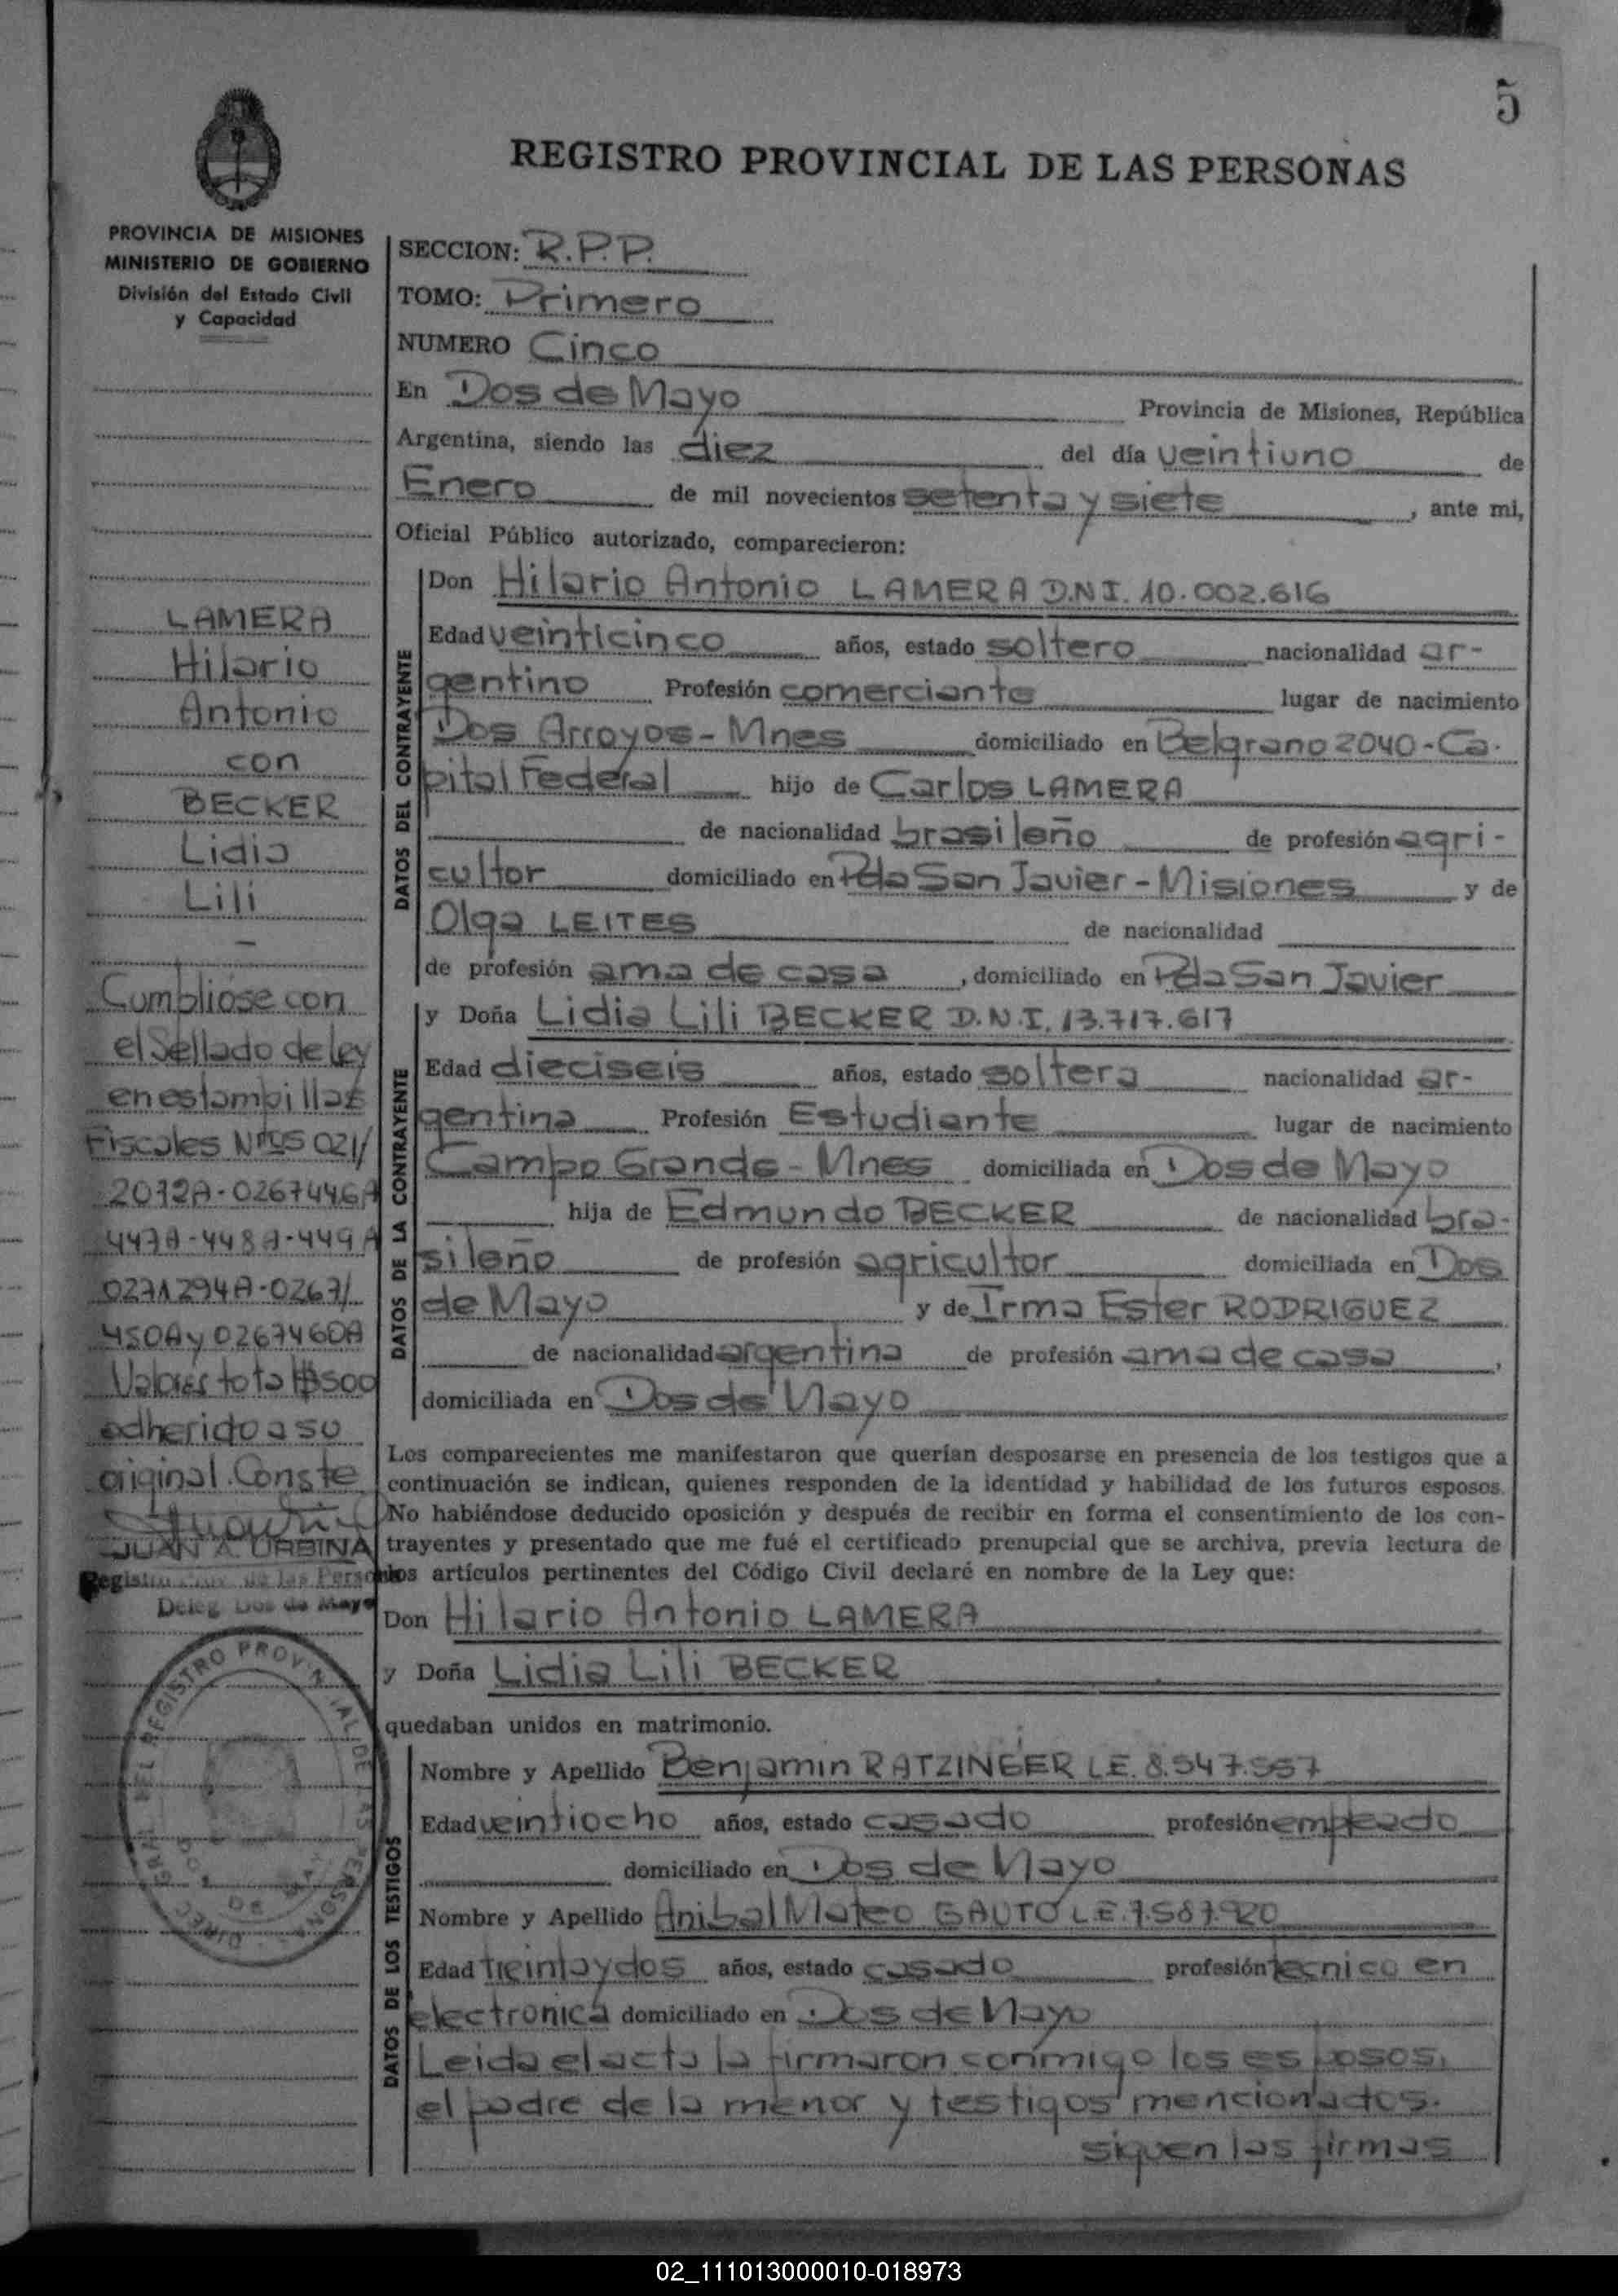 5
REGISTRO PROVINCIAL DE LAS PERSONAS
PROVINCIA DE MISIONES
MINISTERIO DE GOBIERNO
División del Estado Civil
y Capacidad
LAMERA
Hilario
Antonio
con
BECKER
Lidia
Lili
Cumplióse con
el Sellado de ley
en estampillas
Fiscales Nros 021/
2072A-0267446A
447A-448A-449A
0271294A-0267/
450A y 0267460A
Valores total $500
adherido a su
original. Conste
JUAN A. URBINA
de las Personas
Deleg. Dos de Mayo
SECCION: R.P.P.
TOMO: Primero
NUMERO Cinco
En Dos de Mayo Provincia de Misiones, República
Argentina, siendo las diez del día veintiuno de
Enero de mil novecientos setenta y siete, ante mi,
Oficial Público autorizado, comparecieron:
DATOS DEL CONTRAYENTE
Don Hilario Antonio LAMERA D.N.I. 10.002.616
Edad veinticinco años, estado soltero nacionalidad ar-
gentino Profesión comerciante lugar de nacimiento
Dos Arroyos-Mnes domiciliado en Belgrano 2040-Ca-
pital Federal hijo de Carlos LAMERA
de nacionalidad brasileño de profesión agri-
cultor domiciliado en Pda San Javier-Misiones y de
Olga LEITES de nacionalidad
de profesión ama de casa, domiciliado en Pda San Javier
DATOS DE LA CONTRAYENTE
y Doña Lidia Lili BECKER D.N.I. 13.717.617
Edad dieciseis años, estado soltera nacionalidad ar-
gentina Profesión Estudiante lugar de nacimiento
Campo Grande-Mnes domiciliada en Dos de Mayo
hija de Edmundo BECKER de nacionalidad bra-
sileño de profesión agricultor domiciliada en Dos
de Mayo y de Irma Ester RODRIGUEZ
de nacionalidad argentina de profesión ama de casa,
domiciliada en Dos de Mayo
Los comparecientes me manifestaron que querían desposarse en presencia de los testigos que a
continuación se indican, quienes responden de la identidad y habilidad de los futuros esposos.
No habiéndose deducido oposición y después de recibir en forma el consentimiento de los con-
trayentes y presentado que me fué el certificado prenupcial que se archiva, previa lectura de
los artículos pertinentes del Código Civil declaré en nombre de la Ley que:
Don Hilario Antonio LAMERA
y Doña Lidia Lili BECKER
quedaban unidos en matrimonio.
DATOS DE LOS TESTIGOS
Nombre y Apellido Benjamin RATZINGER L.E. 8.547.557
Edad veintiocho años, estado casado profesión empleado
domiciliado en Dos de Mayo
Nombre y Apellido Anibal Mateo GAUTO L.E. 7.587.920
Edad treinta y dos años, estado casado profesión tecnico en
electronica domiciliado en Dos de Mayo
Leida el acta la firmaron conmigo los esposos,
el padre de la menor y testigos mencionados.
siguen las firmas
02_111013000010-018973